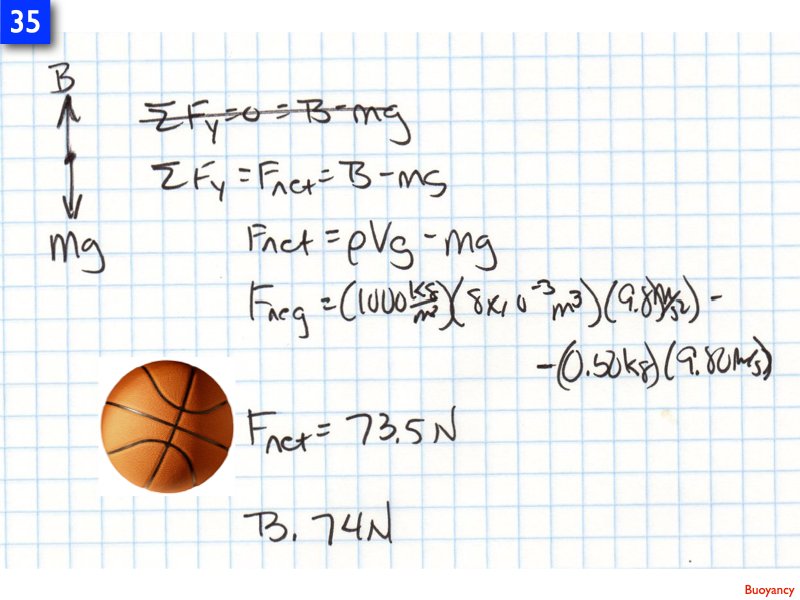 35
B
ΣFy = 0 = B - mg
ΣFy = Fnet = B - mg
mg
Fnet = ρVg - mg
Fneg = (1000 kg/m³)(8x10⁻³ m³)(9.8 m/s²) -
- (0.50 kg)(9.80 m/s)
Fnet = 73.5 N
B. 74N
Buoyancy